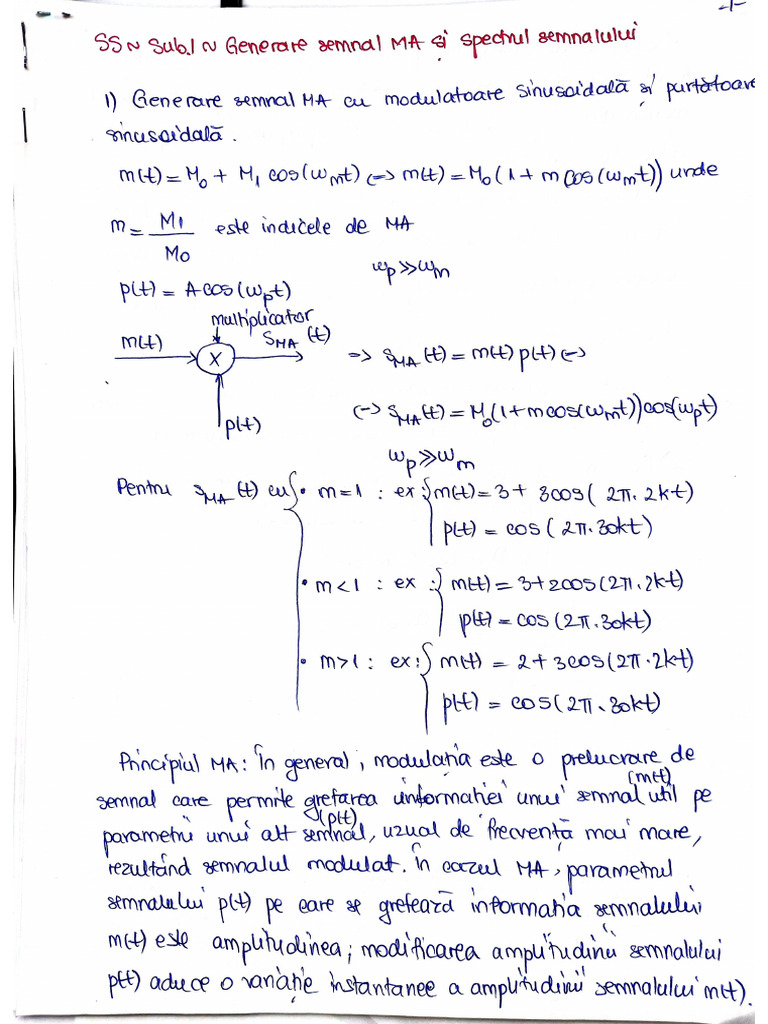 -1-
SS ~ Sub.1 ~ Generare semnal MA și spectrul semnalului
1) Generare semnal MA cu modulatoare sinusoidală și purtătoare
sinusoidală.
m(t) = M₀ + M₁ cos(ωₘt) (=> m(t) = M₀(1 + m cos(ωₘt)) unde
m = M1/M0 este indicele de MA
ωp >> ωm
p(t) = A cos(ωpt)
multiplicator
m(t) X S_MA(t) => s_MA(t) = m(t) p(t) (=>
p(t) (=> s_MA(t) = M₀(1+mcos(ωₘt))cos(ωpt)
ωp >> ωm
Pentru s_MA(t) cu { • m=1 : ex: { m(t) = 3 + 3cos(2π. 2kt)
p(t) = cos(2π. 30kt)
• m<1 : ex: { m(t) = 3+2cos(2π. 2kt)
p(t) = cos(2π. 30kt)
• m>1 : ex: { m(t) = 2 + 3cos(2π. 2kt)
p(t) = cos(2π. 30kt)
Principiul MA: În general, modulația este o prelucrare de
semnal care permite grefarea informației unui semnal util (m(t)) pe
parametrii unui alt semnal (p(t)), uzual de frecvență mai mare,
rezultând semnalul modulat. În cazul MA, parametrul
semnalului p(t) pe care se grefează informația semnalului
m(t) este amplitudinea; modificarea amplitudinii semnalului
p(t) aduce o variație instantanee a amplitudinii semnalului m(t).